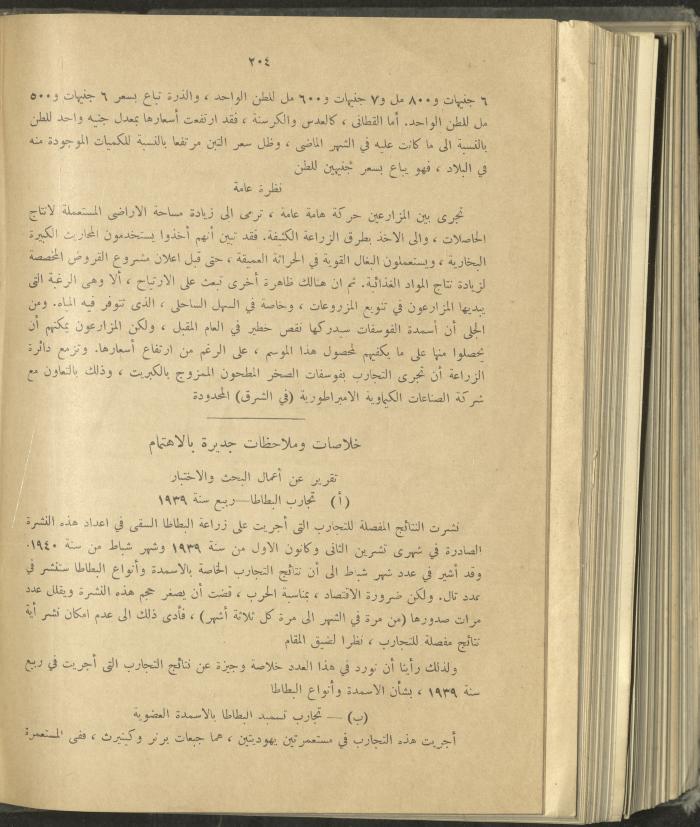 ٢٠٤
٦ جنيهات و٨٠٠ مل و٧ جنيهات و٦٠٠ مل للطن الواحد ، والذرة تباع بسعر ٦ جنيهات و٥٠٠
مل للطن الواحد. أما القطانى ، كالعدس والكرسنة ، فقد ارتفعت أسعارها بمعدل جنيه واحد للطن
بالنسبة الى ما كانت عليه في الشهر الماضى ، وظل سعر التبن مرتفعا بالنسبة للكميات الموجودة منه
في البلاد ، فهو يباع بسعر جنيهين للطن
نظرة عامة
تجرى بين المزارعين حركة هامة عامة ، ترمى الى زيادة مساحة الاراضى المستعملة لانتاج
الحاصلات ، والى الاخذ بطرق الزراعة الكثيفة. فقد تبين أنهم أخذوا يستخدمون المحاريث الكبيرة
البخارية ، ويستعملون البغال القوية في الحراثة العميقة ، حتى قبل اعلان مشروع القروض المخصصة
لزيادة نتاج المواد الغذائية. ثم ان هنالك ظاهرة أخرى تبعث على الارتياح ، ألا وهى الرغبة التى
يبديها المزارعون في تنويع المزروعات ، وخاصة في السهل الساحلى ، الذى تتوفر فيه المياه. ومن
الجلى أن أسمدة الفوسفات سيدركها نقص خطير في العام المقبل ، ولكن المزارعون يمكنهم أن
يحصلوا منها على ما يكفيهم لمحصول هذا الموسم ، على الرغم من ارتفاع أسعارها. وتزمع دائرة
الزراعة أن تجرى التجارب بفوسفات الصخر المطحون الممزوج بالكبريت ، وذلك بالتعاون مع
شركة الصناعات الكيماوية الامبراطورية (في الشرق) المحدودة
خلاصات وملاحظات جديرة بالاهتمام
تقرير عن أعمال البحث والاختبار
(أ) تجارب البطاطا—ربيع سنة ١٩٣٩
نشرت النتائج المفصلة للتجارب التى أجريت على زراعة البطاطا السقى في اعداد هذه النشرة
الصادرة في شهرى تشرين الثانى وكانون الاول من سنة ١٩٣٩ وشهر شباط من سنة ١٩٤٠.
وقد أشير في عدد شهر شباط الى أن نتائج التجارب الخاصة بالاسمدة وأنواع البطاطا ستنشر في
عدد تال. ولكن ضرورة الاقتصاد ، بمناسبة الحرب ، قضت أن يصغر حجم هذه النشرة ويقلل عدد
مرات صدورها (من مرة في الشهر الى مرة كل ثلاثة أشهر) ، فأدى ذلك الى عدم امكان نشر أية
نتائج مفصلة للتجارب ، نظرا لضيق المقام
ولذلك رأينا أن نورد في هذا العدد خلاصة وجيزة عن نتائج التجارب التى أجريت في ربيع
سنة ١٩٣٩ ، بشأن الاسمدة وأنواع البطاطا
(ب) — تجارب تسميد البطاطا بالاسمدة العضوية
أجريت هذه التجارب في مستعمرتين يهوديتين ، هما جبعات برنر وكينيرث ، ففى المستعمرة